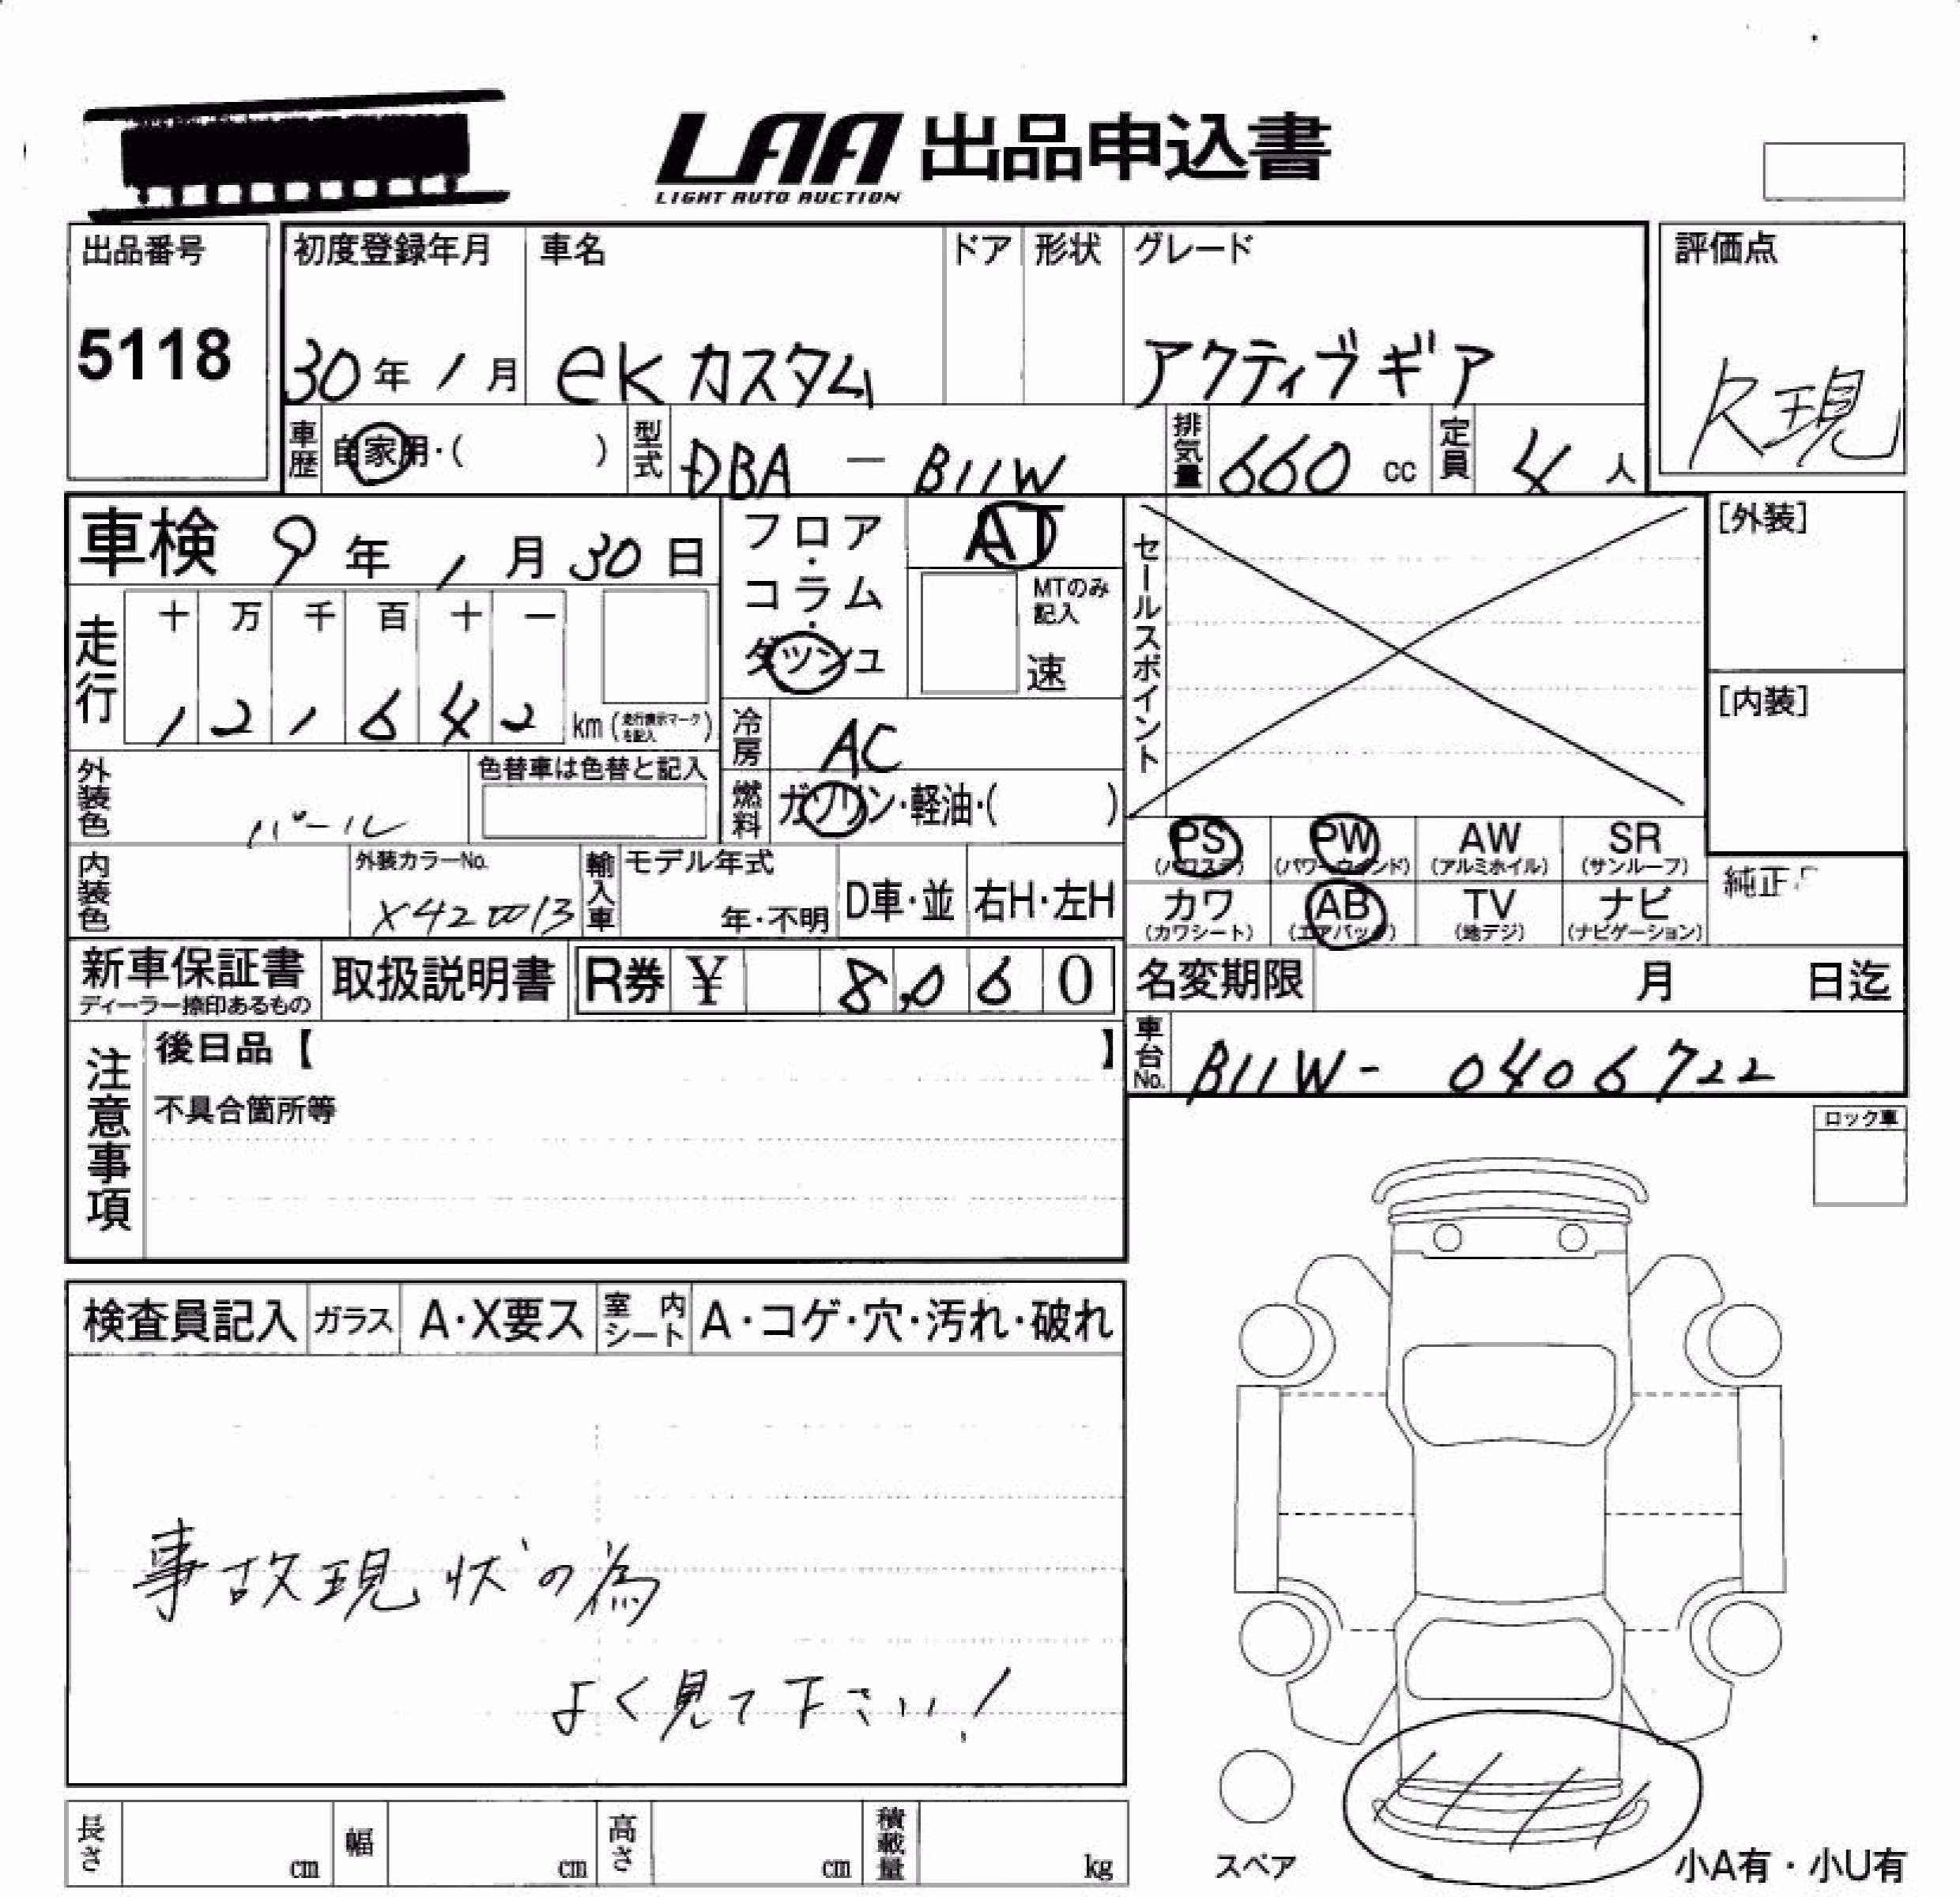 LAA 出品申込書
LIGHT AUTO AUCTION
出品番号 初度登録年月 車名 ドア 形状 グレード 評価点
5118 30年 1月 ekカスタム アクティブギア R現
車歴 自家用・( ) 型式 DBA - B11W 排気量 660 cc 定員 4 人
車検 9年 1月 30日 フロア・コラム・ダッシュ AT セールスポイント [外装]
MTのみ記入
速
走行 十 万 千 百 十 一
1 2 1 6 4 2 km (走行表示マークを記入)
[内装]
冷房 AC
外装色 パール 色替車は色替と記入 燃料 ガソリン・軽油・( )
PS (パワステ) PW (パワーウインド) AW (アルミホイル) SR (サンルーフ)
内装色 外装カラーNo. X42 輸入車 モデル年式 年・不明 D車・並 右H・左H
カワ (カワシート) AB (エアバック) TV (地デジ) ナビ (ナビゲーション) 純正
新車保証書 ディーラー捺印あるもの 取扱説明書 R券 ¥ 8,060 名変期限 月 日迄
注意事項 後日品【 】 車台No. B11W- 0406722
不具合箇所等 ロック車
検査員記入 ガラス A・X要ス 室内シート A・コゲ・穴・汚れ・破れ
事故現状の為
よく見て下さい!
長さ cm 幅 cm 高さ cm 積載量 kg スペア 小A有・小U有